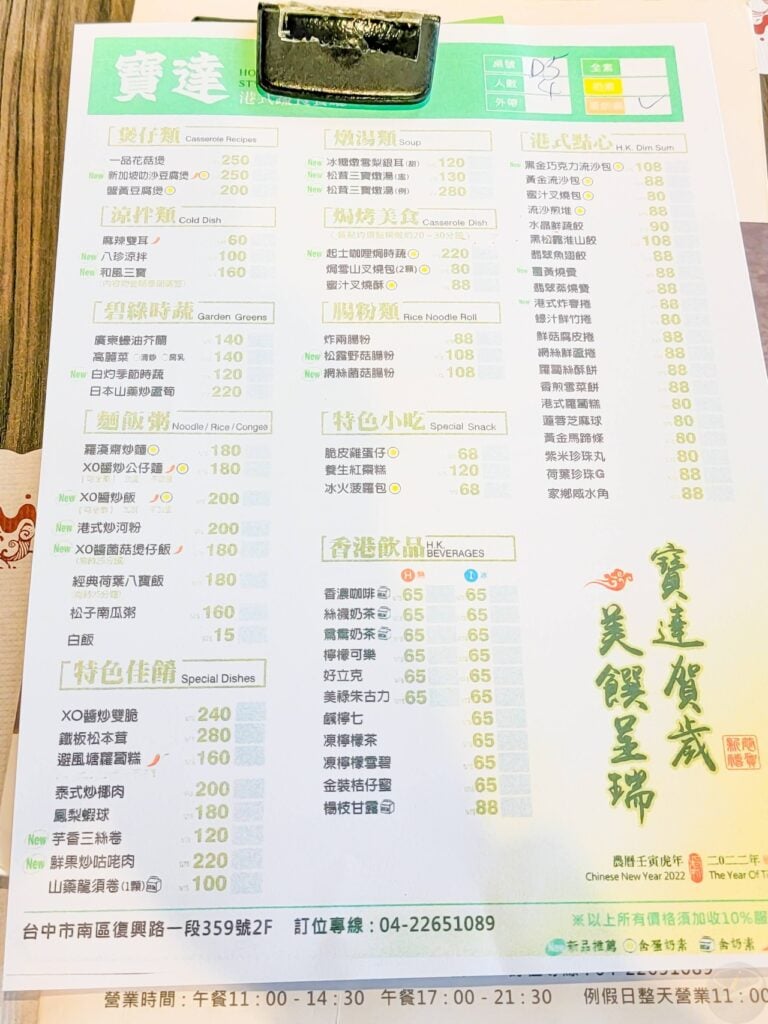 寶達
桌號 D5
人數 4
外帶
全素
煲仔類 Casserole Recipes
一品花菇煲 250
New 新加坡叻沙豆腐煲 250
蟹黃豆腐煲 200
涼拌類 Cold Dish
麻辣雙耳 60
New 八珍涼拌 100
New 和風三寶 160
碧綠時蔬 Garden Greens
廣東蠔油芥蘭 140
高麗菜 ○清炒 ○腐乳 140
New 白灼季節時蔬 120
日本山藥炒蘆筍 220
麵飯粥 Noodle / Rice / Congee
羅漢齋炒麵 180
XO醬炒公仔麵 180
New XO醬炒飯 200
New 港式炒河粉 200
New XO醬菌菇煲仔飯 180
經典荷葉八寶飯 180
松子南瓜粥 160
白飯 15
特色佳餚 Special Dishes
XO醬炒雙脆 240
鐵板松本茸 280
避風塘蘿蔔糕 160
泰式炒椰肉 200
鳳梨蝦球 180
New 芋香三絲卷 120
New 鮮果炒咕咾肉 220
山藥龍須卷(1顆) 100
燉湯類 Soup
New 冰糖燉雪梨銀耳(甜) 120
New 松茸三寶燉湯(盅) 130
New 松茸三寶燉湯(例) 280
焗烤美食 Casserole Dish
New 起士咖哩焗時蔬 220
焗雪山叉燒包(2顆) 80
蜜汁叉燒酥 88
腸粉類 Rice Noodle Roll
炸兩腸粉 88
New 松露野菇腸粉 108
New 網絲菌菇腸粉 108
特色小吃 Special Snack
脆皮雞蛋仔 68
養生紅棗糕 120
冰火菠蘿包 68
香港飲品 H.K. BEVERAGES
H 熱 I 冰
香濃咖啡 65 65
絲襪奶茶 65 65
鴛鴦奶茶 65 65
檸檬可樂 65 65
好立克 65 65
美祿朱古力 65 65
鹹檸七 65
凍檸檬茶 65
凍檸檬雪碧 65
金裝桔仔蜜 65
楊枝甘露 88
港式點心 H.K. Dim Sum
New 黑金巧克力流沙包 108
黃金流沙包 88
蜜汁叉燒包 88
流沙煎堆 88
水晶鮮蔬餃 90
黑松露淮山餃 108
翡翠魚翅餃 88
New 薑黃燒賣 88
翡翠蒸燒賣 88
New 港式炸春捲 88
蠔汁鮮竹捲 80
鮮菇腐皮捲 88
網絲鮮蘆捲 88
羅蔔絲酥餅 88
香煎雪菜餅 88
港式蘿蔔糕 80
蓮蓉芝麻球 80
黃金馬蹄條 80
紫米珍珠丸 80
荷葉珍珠G 88
家鄉咸水角 88
寶達賀歲
美饌呈瑞
恭賀新禧
農曆壬寅虎年 二〇二二年
Chinese New Year 2022 The Year Of
台中市南區復興路一段359號2F 訂位專線 : 04-22651089
※以上所有價格須加收10%服
New 新品推薦 含蛋奶素 含奶素
營業時間 : 午餐11 : 00 - 14 : 30 午餐17 : 00 - 21 : 30 例假日整天營業11 : 00